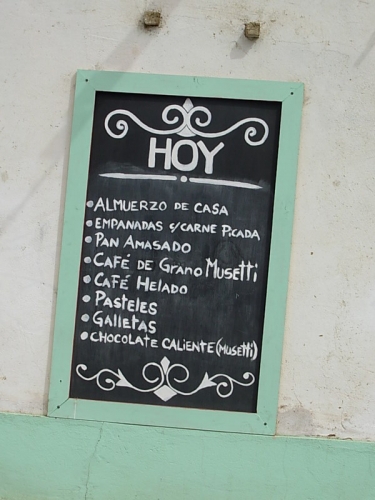 HOY
• ALMUERZO DE CASA
• EMPANADAS c/CARNE PICADA
• PAN AMASADO
• CAFÉ DE GRANO MUSETTI
• CAFÉ HELADO
• PASTELES
• GALLETAS
• CHOCOLATE CALIENTE (MUSETTI)